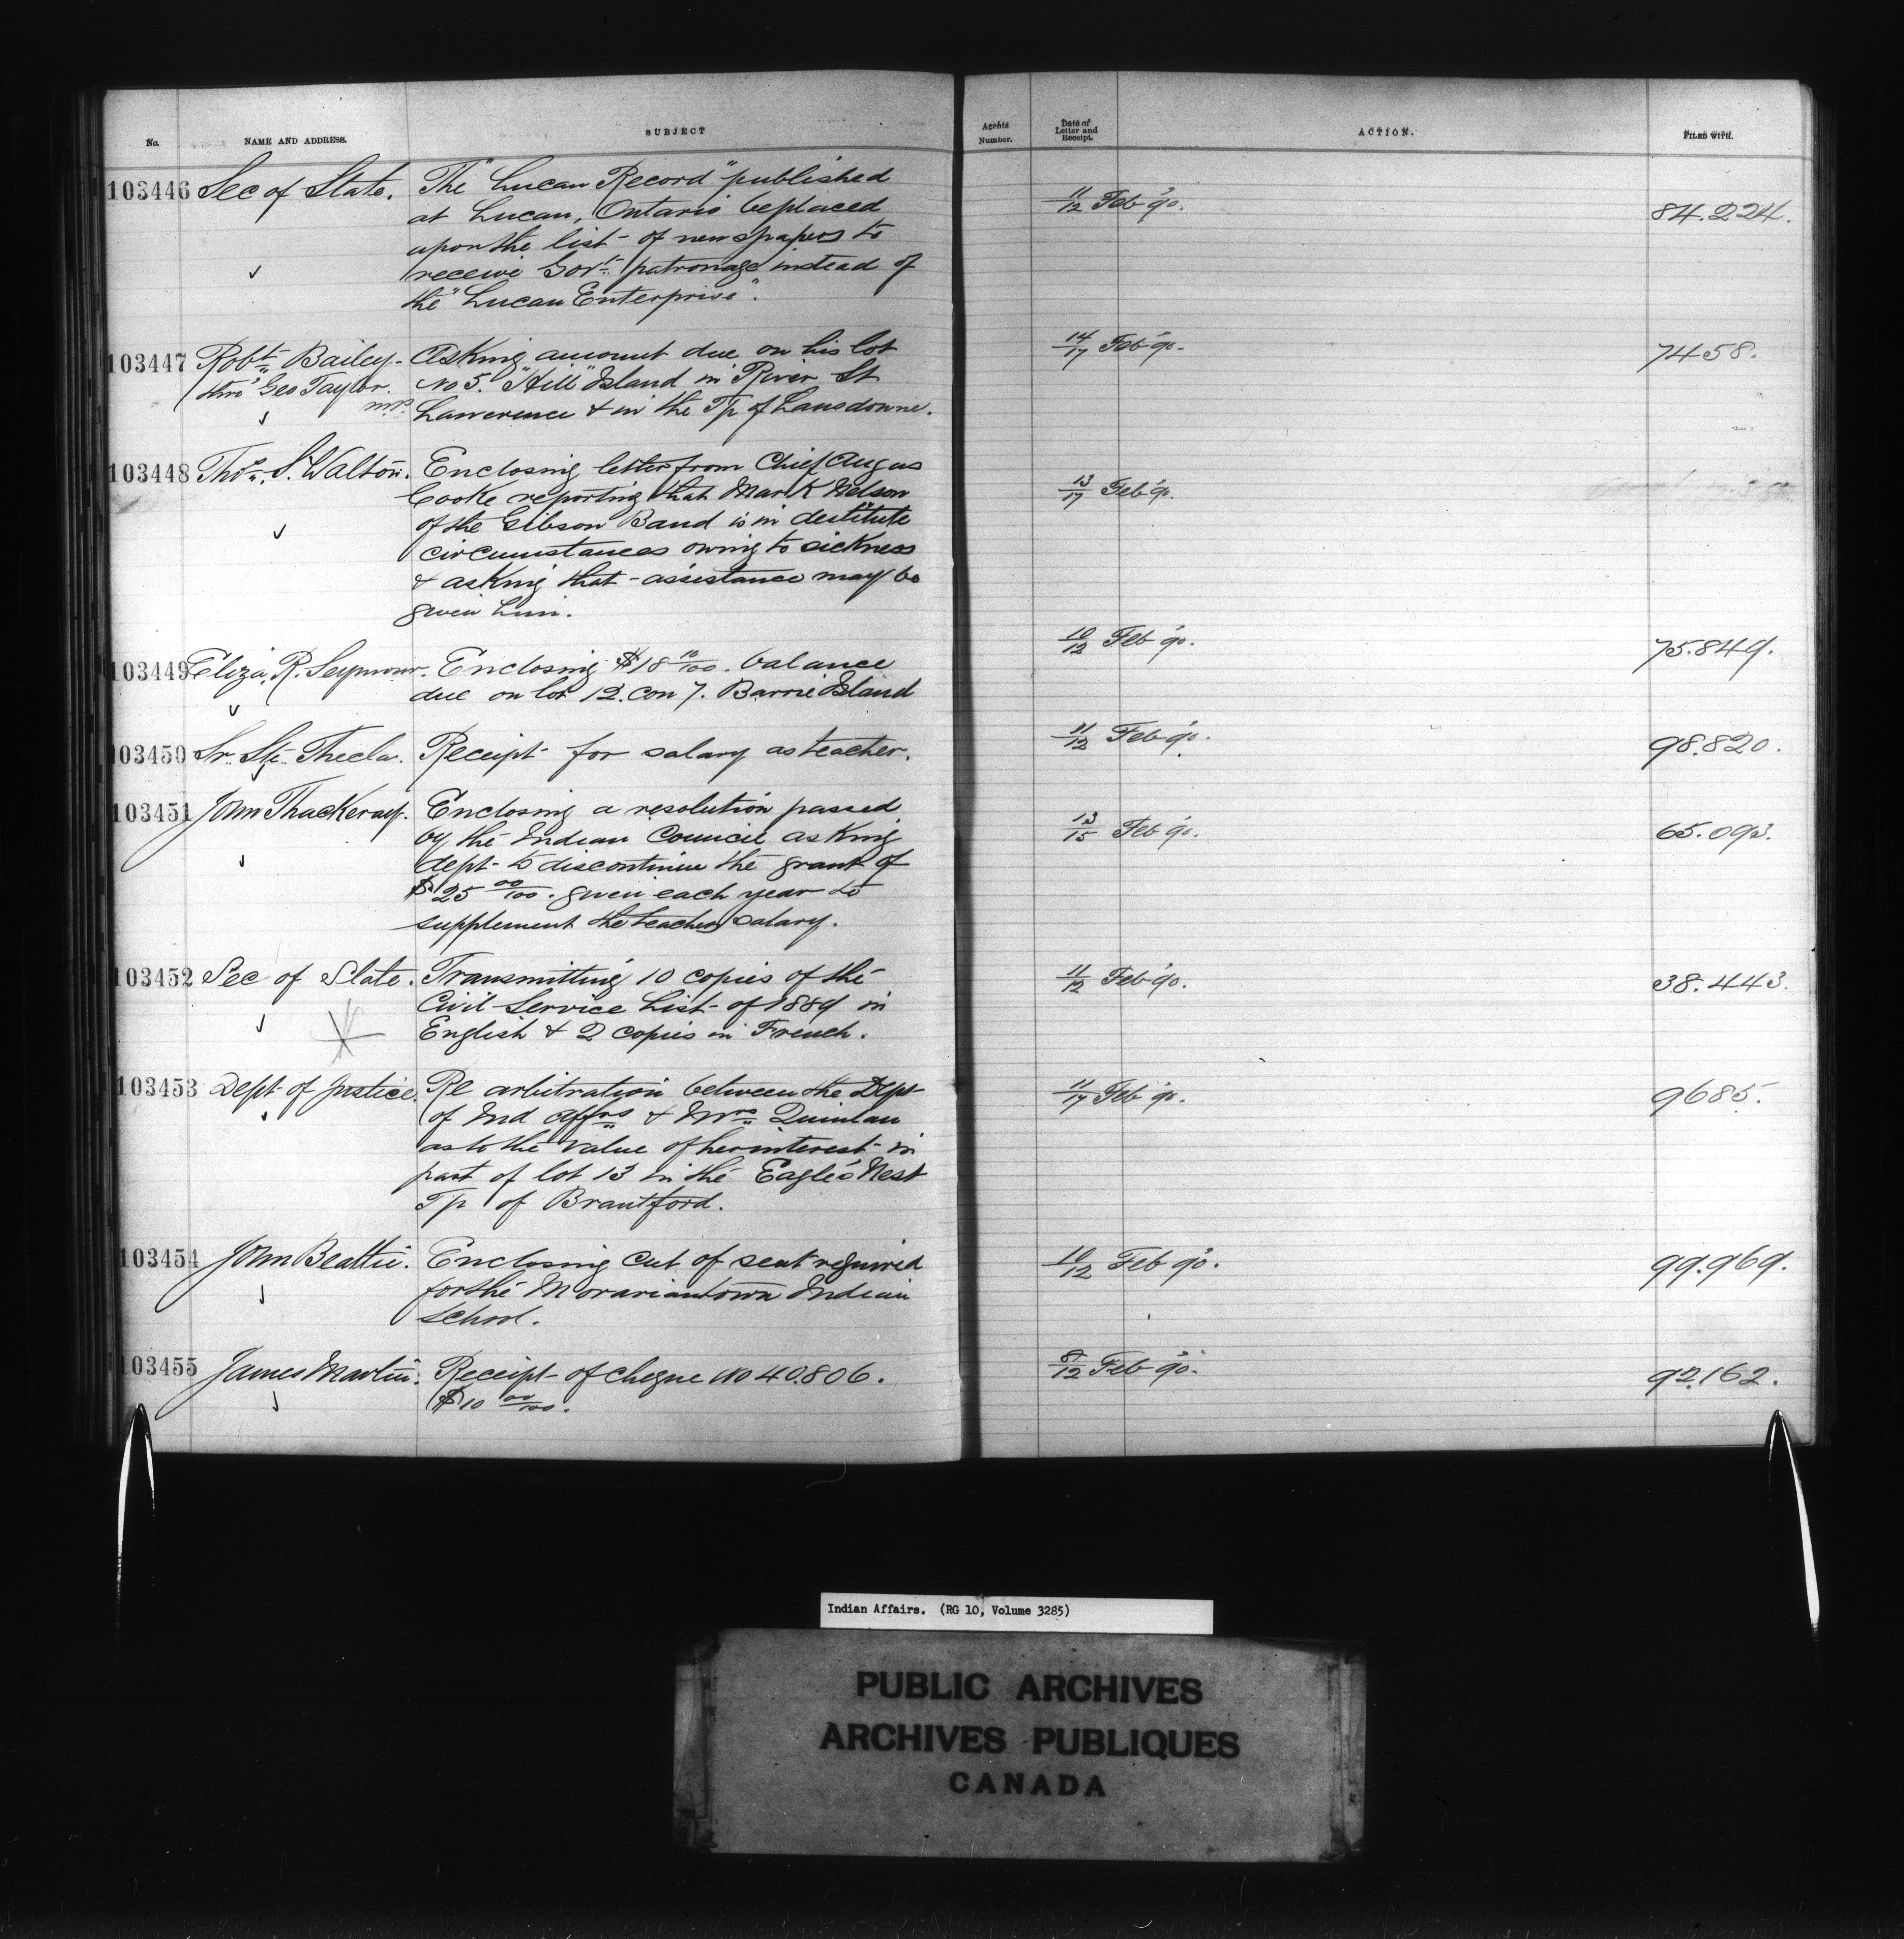 No. NAME AND ADDRESS. SUBJECT Agents Number. Date of Letter and Receipt. ACTION. FILED WITH.
103446 Sec of State. The "Lucan Record" published 11/12 Feb '90. 84.224.
at Lucan, Ontario be placed
upon the list of newspapers to
receive Govt. patronage instead of
the "Lucan Enterprise".
103447 Robt. Bailey. Asking amount due on his lot 14/17 Feb '90. 7458.
thro' Geo Taylor. No 5. "Hill" Island in River St
M.P. Lawerence & in the Tp of Lansdowne.
103448 Thos. S. Walton. Enclosing letter from Chief Angus 13/17 Feb '90.
Cooke reporting that Mark Nelson
of the Gibson Band is in destitute
circumstances owing to sickness
& asking that assistance may be
given him.
103449 Eliza. R. Seymour. Enclosing $18 10/100. balance 10/12 Feb '90. 75.849.
due on lot 12. Con 7. Barrie Island
103450 Sr. Ste. Thecla. Receipt for salary as teacher. 11/12 Feb '90. 98.820.
103451 John Thackeray. Enclosing a resolution passed 13/15 Feb '90. 65.093.
by the Indian Council asking
dept. to discontinue the grant of
$25 00/100. given each year to
supplement the teachers salary.
103452 Sec of State. Transmitting 10 copies of the 11/12 Feb '90. 38.443.
Civil Service List of 1889 in
English & 2 copies in French.
103453 Dept of Justice. Re arbitration between the Dept 11/17 Feb '90. 9685.
of Ind Affrs & Mrs Quinlan
as to the value of her interest in
part of lot 13 in the Eagle's Nest
Tp of Brantford.
103454 John Beattie. Enclosing cut of seat required 10/12 Feb '90. 99.969.
for the Moraviantown Indian
School.
103455 James Martin. Receipt of cheque No 40.806. 8/12 Feb '90. 92.162.
$10 00/100.
Indian Affairs. (RG 10, Volume 3285)
PUBLIC ARCHIVES
ARCHIVES PUBLIQUES
CANADA